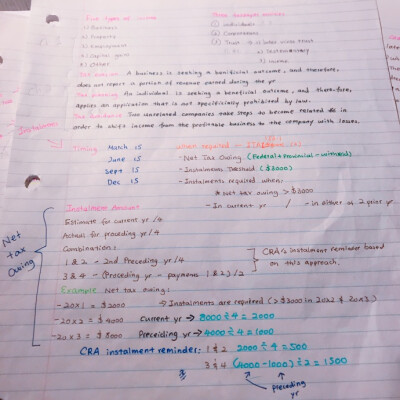 Five types of income
1) Business
2) Property
3) Employment
4) Capital gains
5) Other
① Individuals
② Corporations
③ Trust → inter vivos trust
Tax evasion A business is seeking a beneficial outcome, and therefore,
does not report a portion of revenue earned during the yr.
Tax planning An individual is seeking a beneficial outcome, and therefore,
applies an application that is not specifically prohibited by law.
Tax avoidance Two unrelated companies take steps to become related in
order to shift income from the profitable business to the company with losses.
Instalments
Timing March 15
June 15
Sept 15
Dec 15
when required
- Net Tax Owing (Federal + Provincial - withheld)
- Instalments Threshold ($3000)
- Instalments required when:
* net tax owing > $3000
- In current yr / - in either of 2 prior yr.
Instalment Amount
Estimate for current yr/4
Actual for preceding yr/4
Combination:
1 & 2 - 2nd Preceding yr/4
3 & 4 - (Preceding yr - payments 1 & 2)/2
CRA's instalment reminder based
on this approach.
Net
tax
owing
Example Net tax owing:
- 20x1 = $2000 → Instalments are required (> $3000 in 20x2 & 20x3)
- 20x2 = $4000 Current yr → 8000 ÷ 4 = 2000
- 20x3 = $8000 Preceiding yr → 4000 ÷ 4 = 1000
CRA instalment reminder: 1 & 2 2000 ÷ 4 = 500
3 & 4 (4000 - 1000) ÷ 2 = 1500
preceding
yr